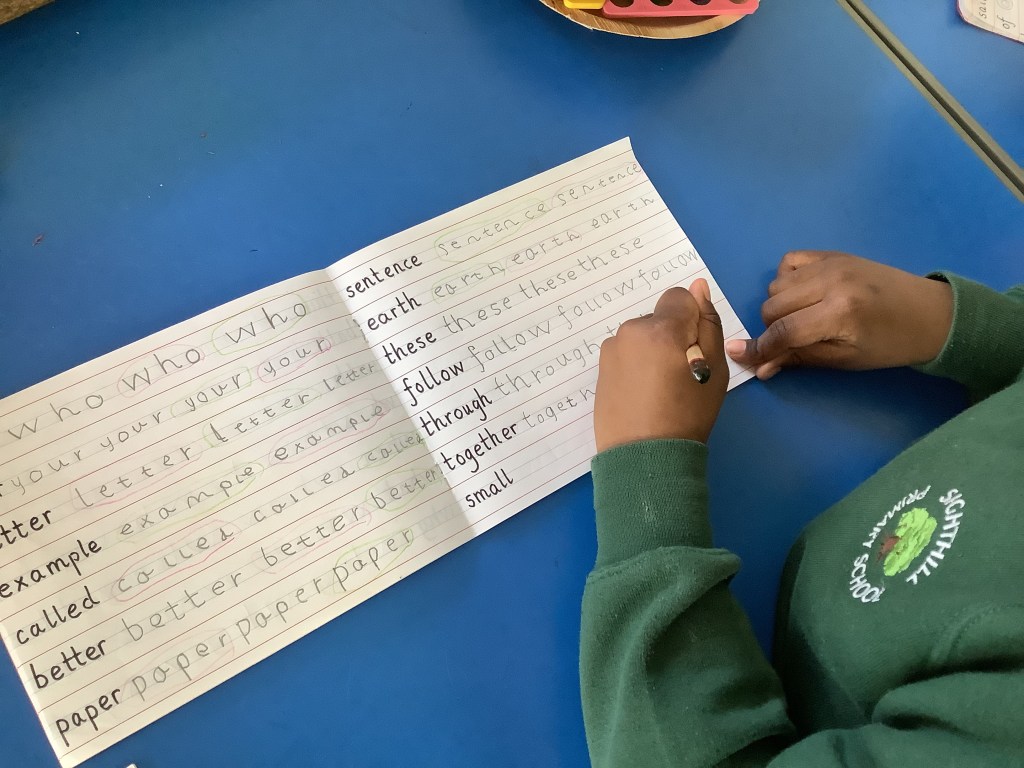 who who who
your your your your
etter letter letter letter
example example example
called called called called
better better better better
paper paper paper paper
sentence sentence sentence
earth earth earth earth
these these these these
follow follow follow follow
through through
together
small
SIGHTHILL
PRIMARY SCHOOL
of